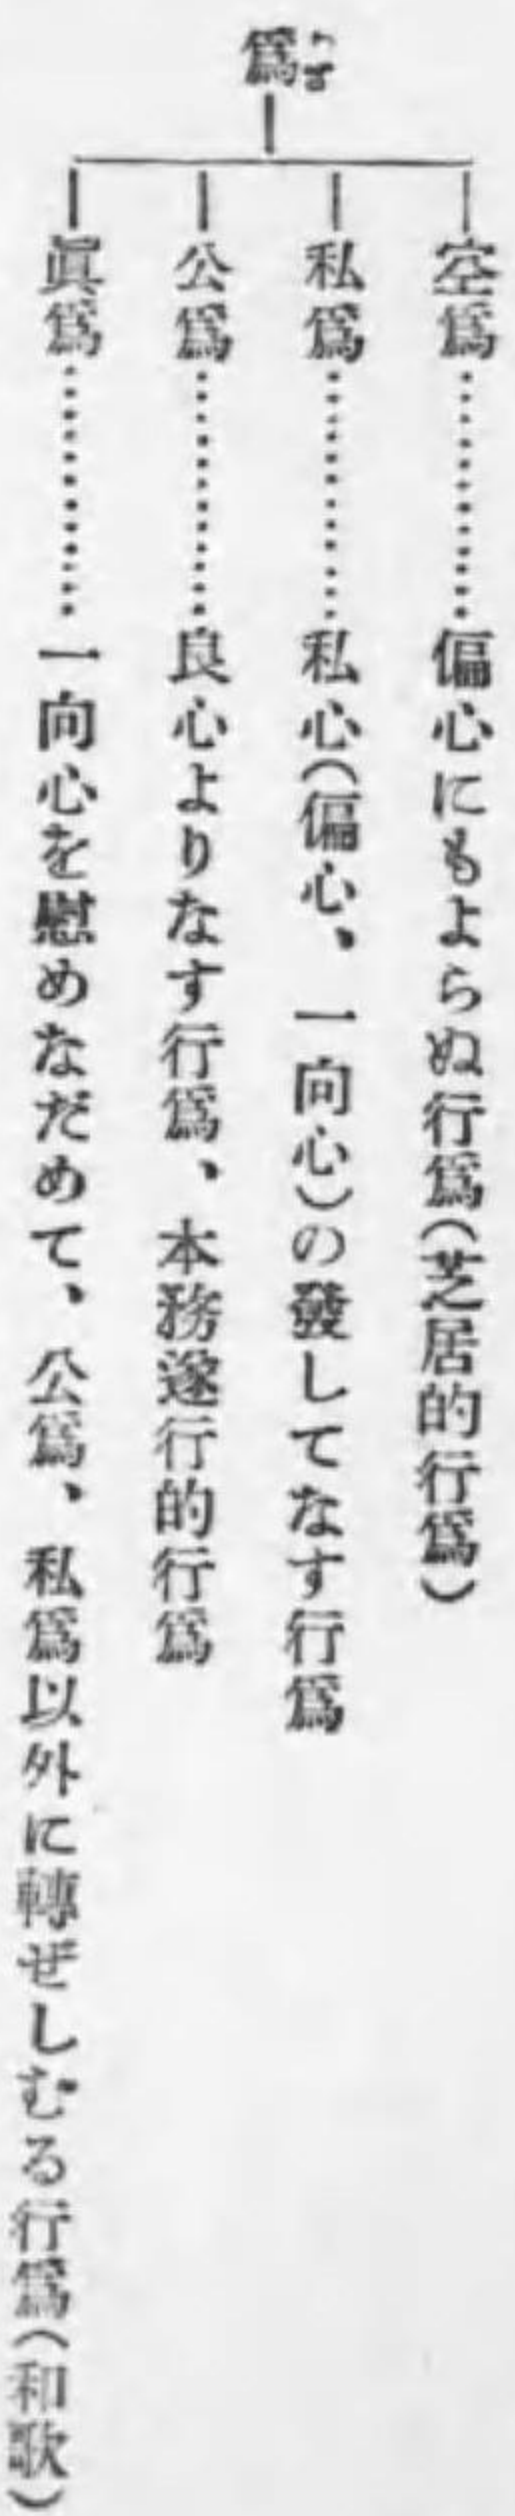 爲
空爲…………偏心にもよらぬ行爲(芝居的行爲)
私爲…………私心(偏心、一向心)の發してなす行爲
公爲…………良心よりなす行爲、本務遂行的行爲
眞爲…………一向心を慰めなだめて、公爲、私爲以外に轉ぜしむる行爲(和歌)